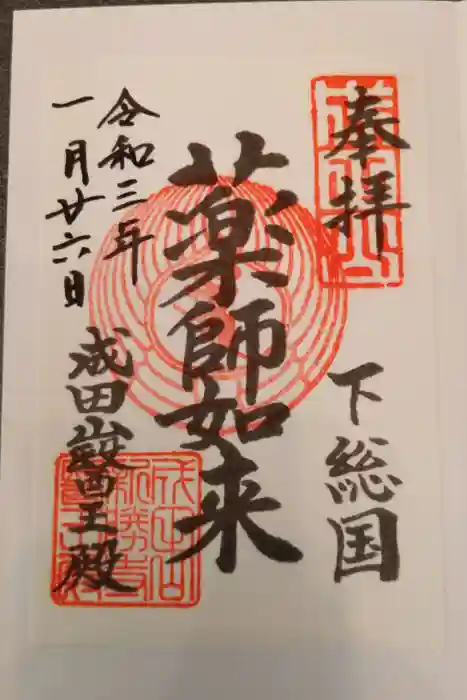 奉拝
下総国
薬師如来
令和三年
一月廿六日
成田山醫王殿
成田山
新勝寺